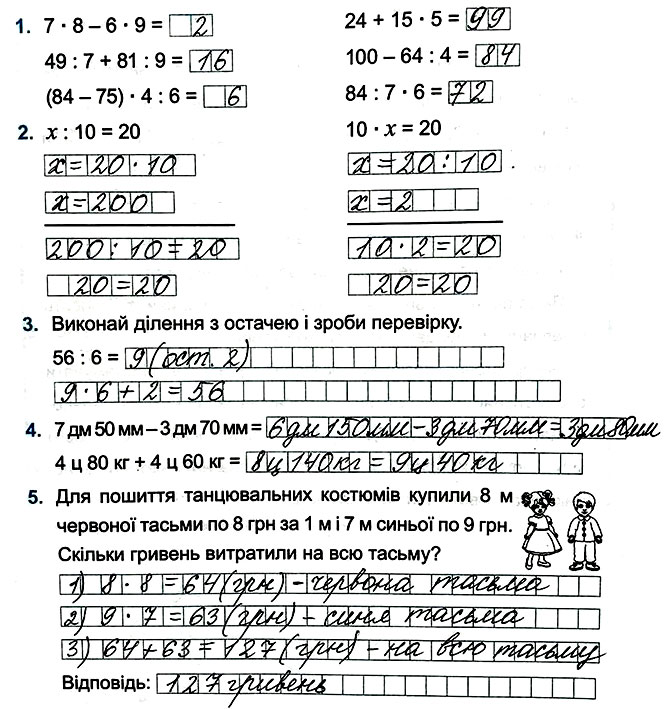 1. 7 · 8 – 6 · 9 = 2
24 + 15 · 5 = 99
49 : 7 + 81 : 9 = 16
100 – 64 : 4 = 84
(84 – 75) · 4 : 6 = 6
84 : 7 · 6 = 72
2. x : 10 = 20
10 · x = 20
x = 20 · 10
x = 20 : 10
x = 200
x = 2
200 : 10 = 20
10 · 2 = 20
20 = 20
20 = 20
3. Виконай ділення з остачею і зроби перевірку.
56 : 6 = 9 (ост. 2)
9 · 6 + 2 = 56
4. 7 дм 50 мм – 3 дм 70 мм = 6 дм 150 мм – 3 дм 70 мм = 3 дм 80 мм
4 ц 80 кг + 4 ц 60 кг = 8 ц 140 кг = 9 ц 40 кг
5. Для пошиття танцювальних костюмів купили 8 м
червоної тасьми по 8 грн за 1 м і 7 м синьої по 9 грн.
Скільки гривень витратили на всю тасьму?
1) 8 · 8 = 64 (грн) – червона тасьма
2) 9 · 7 = 63 (грн) – синя тасьма
3) 64 + 63 = 127 (грн) – на всю тасьму
Відповідь: 127 гривень